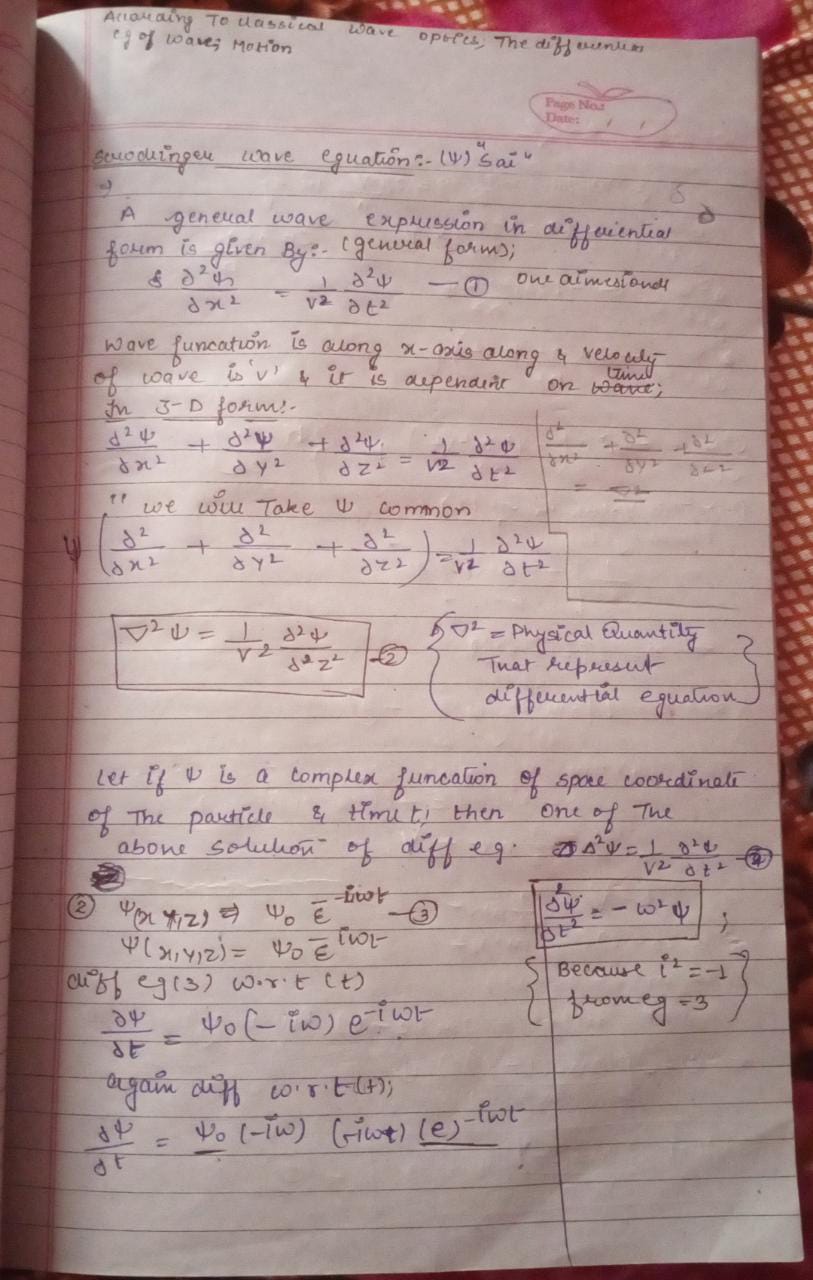 According To classical wave optics, The differential
eq of wave; Motion
Page No.:
Date: / /
Scrodinger wave equation:- (Ψ) "Sai"
⇒
A general wave expression in differiential
form is given By:- (general form);
& ∂²Ψ/∂x² = 1/v² ∂²Ψ/∂t² — ① one dimestional
Wave funcation is along x-axis along & velocity
of wave is 'v' & it is dependent on time wave;
In 3-D form:-
∂²Ψ/∂x² + ∂²Ψ/∂y² + ∂²Ψ/∂z² = 1/v² ∂²Ψ/∂t²
∂²/∂x² + ∂²/∂y² + ∂²/∂z²
= ∇²
" we will Take Ψ common
Ψ (∂²/∂x² + ∂²/∂y² + ∂²/∂z²) = 1/v² ∂²Ψ/∂t²
∇²Ψ = 1/v² ∂²Ψ/∂²z² — ②
{ ∇² = Physical Quantity
That represent
differential equation }
Let if Ψ is a complex funcation of space coordinate
of The particle & time t, then one of The
above solution of diff eq. ∆²Ψ = 1/v² ∂²Ψ/∂t² — ④
② Ψ(x,y,z) ⇒ Ψ₀ e^-iwt — ③
Ψ(x,y,z) = Ψ₀ e^-iwt
diff eq(3) w.r.t (t)
∂Ψ/∂t = Ψ₀(-iw) e^-iwt
again diff w.r.t (t);
∂Ψ/∂t = Ψ₀ (-iw) (-iwt) (e)^-iwt
∂²Ψ/∂t² = -w²Ψ ;
{ Because i² = -1
from eq = 3 }